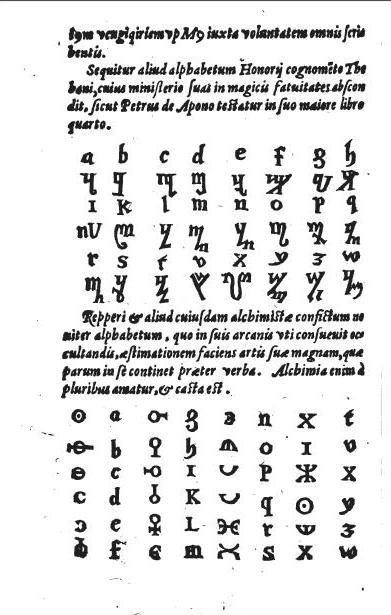 iuxta voluntatem omnis ſcri
bentis.
Sequitur aliud alphabetum Honorij cognomēto The
bani,cuius miniſterio ſuas in magicis fatuitates abſcon
dit, ſicut Petrus de Apono teſtatur in ſuo maiore libro
quarto.
a b c d e f g h
I K l m n o p q
r s t v x y z w
Repperi & aliud cuiuſdam alchimiſtæ confictum no
uiter alphabetum , quo in ſuis arcanis vti conſueuit oc
cultandis,æſtimationem faciens artis ſuæ magnam,quæ
parum in ſe continet præter verba. Alchimia enim à
pluribus amatur,& caſta eſt.
a g n t
b h o v
c I P X
d K q y
e L r z
f m s w